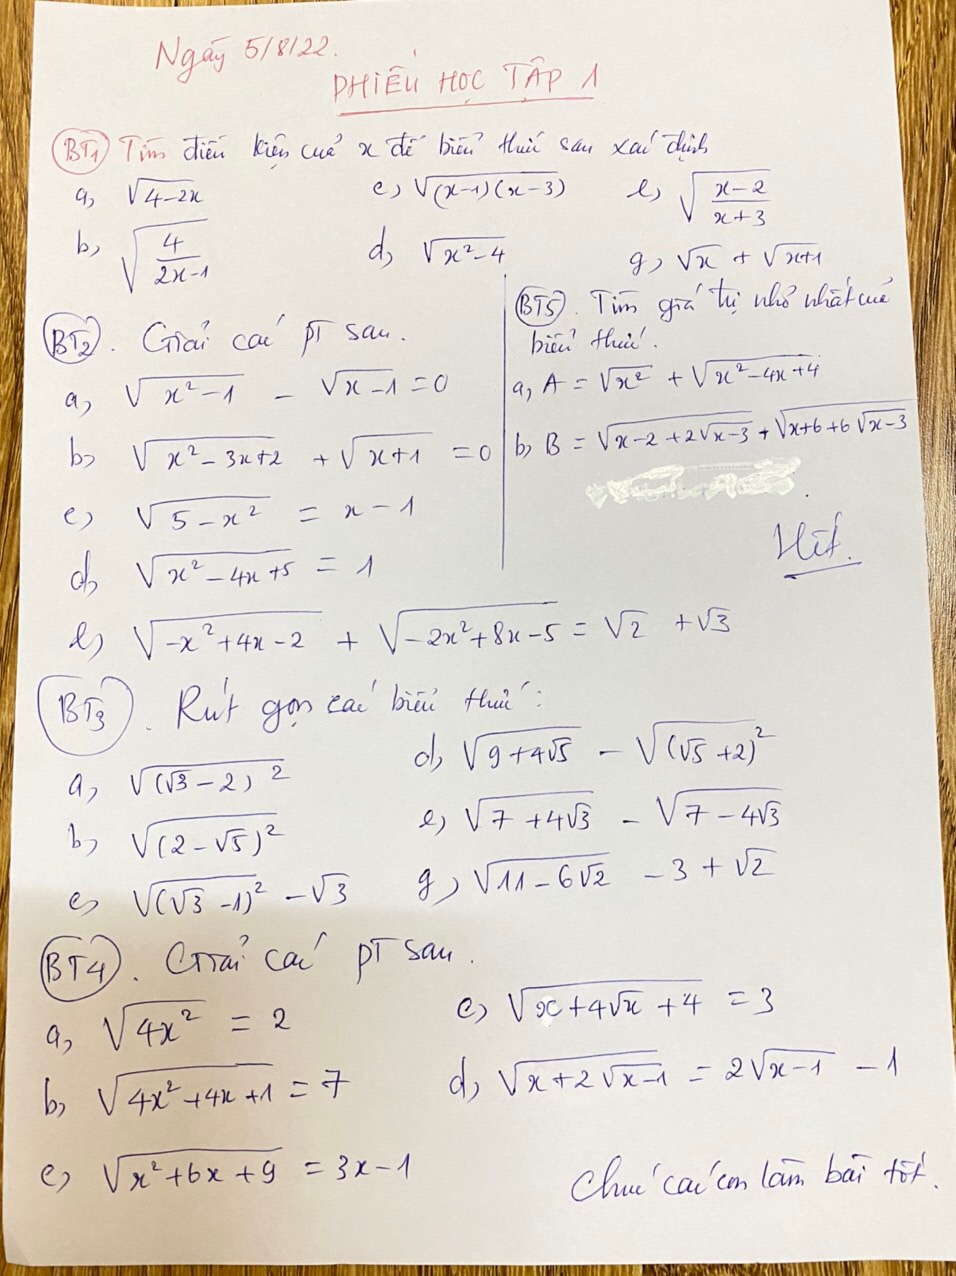 Ngày 5/8/22.
PHIẾU HỌC TẬP 1
BT1 Tìm điều kiện của x để biểu thức sau xác định
a, √(4-2x)
b, √(4/(2x-1))
c, √((x-1)(x-3))
d, √(x²-4)
e, √((x-2)/(x+3))
g, √x + √(x+1)
BT2. Giải các PT sau.
a, √(x²-1) - √(x-1) = 0
b, √(x²-3x+2) + √(x+1) = 0
c, √(5-x²) = x-1
d, √(x²-4x+5) = 1
e, √(-x²+4x-2) + √(-2x²+8x-5) = √2 + √3
BT5. Tìm giá trị nhỏ nhất của
biểu thức.
a, A = √(x²) + √(x²-4x+4)
b, B = √(x-2+2√(x-3)) + √(x+6+6√(x-3))
Hết.
BT3. Rút gọn các biểu thức:
a, √((√3-2)²)
b, √((2-√5)²)
c, √((√3-1)²) - √3
d, √(9+4√5) - √((√5+2)²)
e, √(7+4√3) - √(7-4√3)
g, √(11-6√2) - 3 + √2
BT4. Giải các PT sau.
a, √(4x²) = 2
b, √(4x²+4x+1) = 7
c, √(x²+6x+9) = 3x-1
c, √(x+4√x+4) = 3
d, √(x+2√(x-1)) = 2√(x-1) - 1
Chúc các con làm bài tốt.